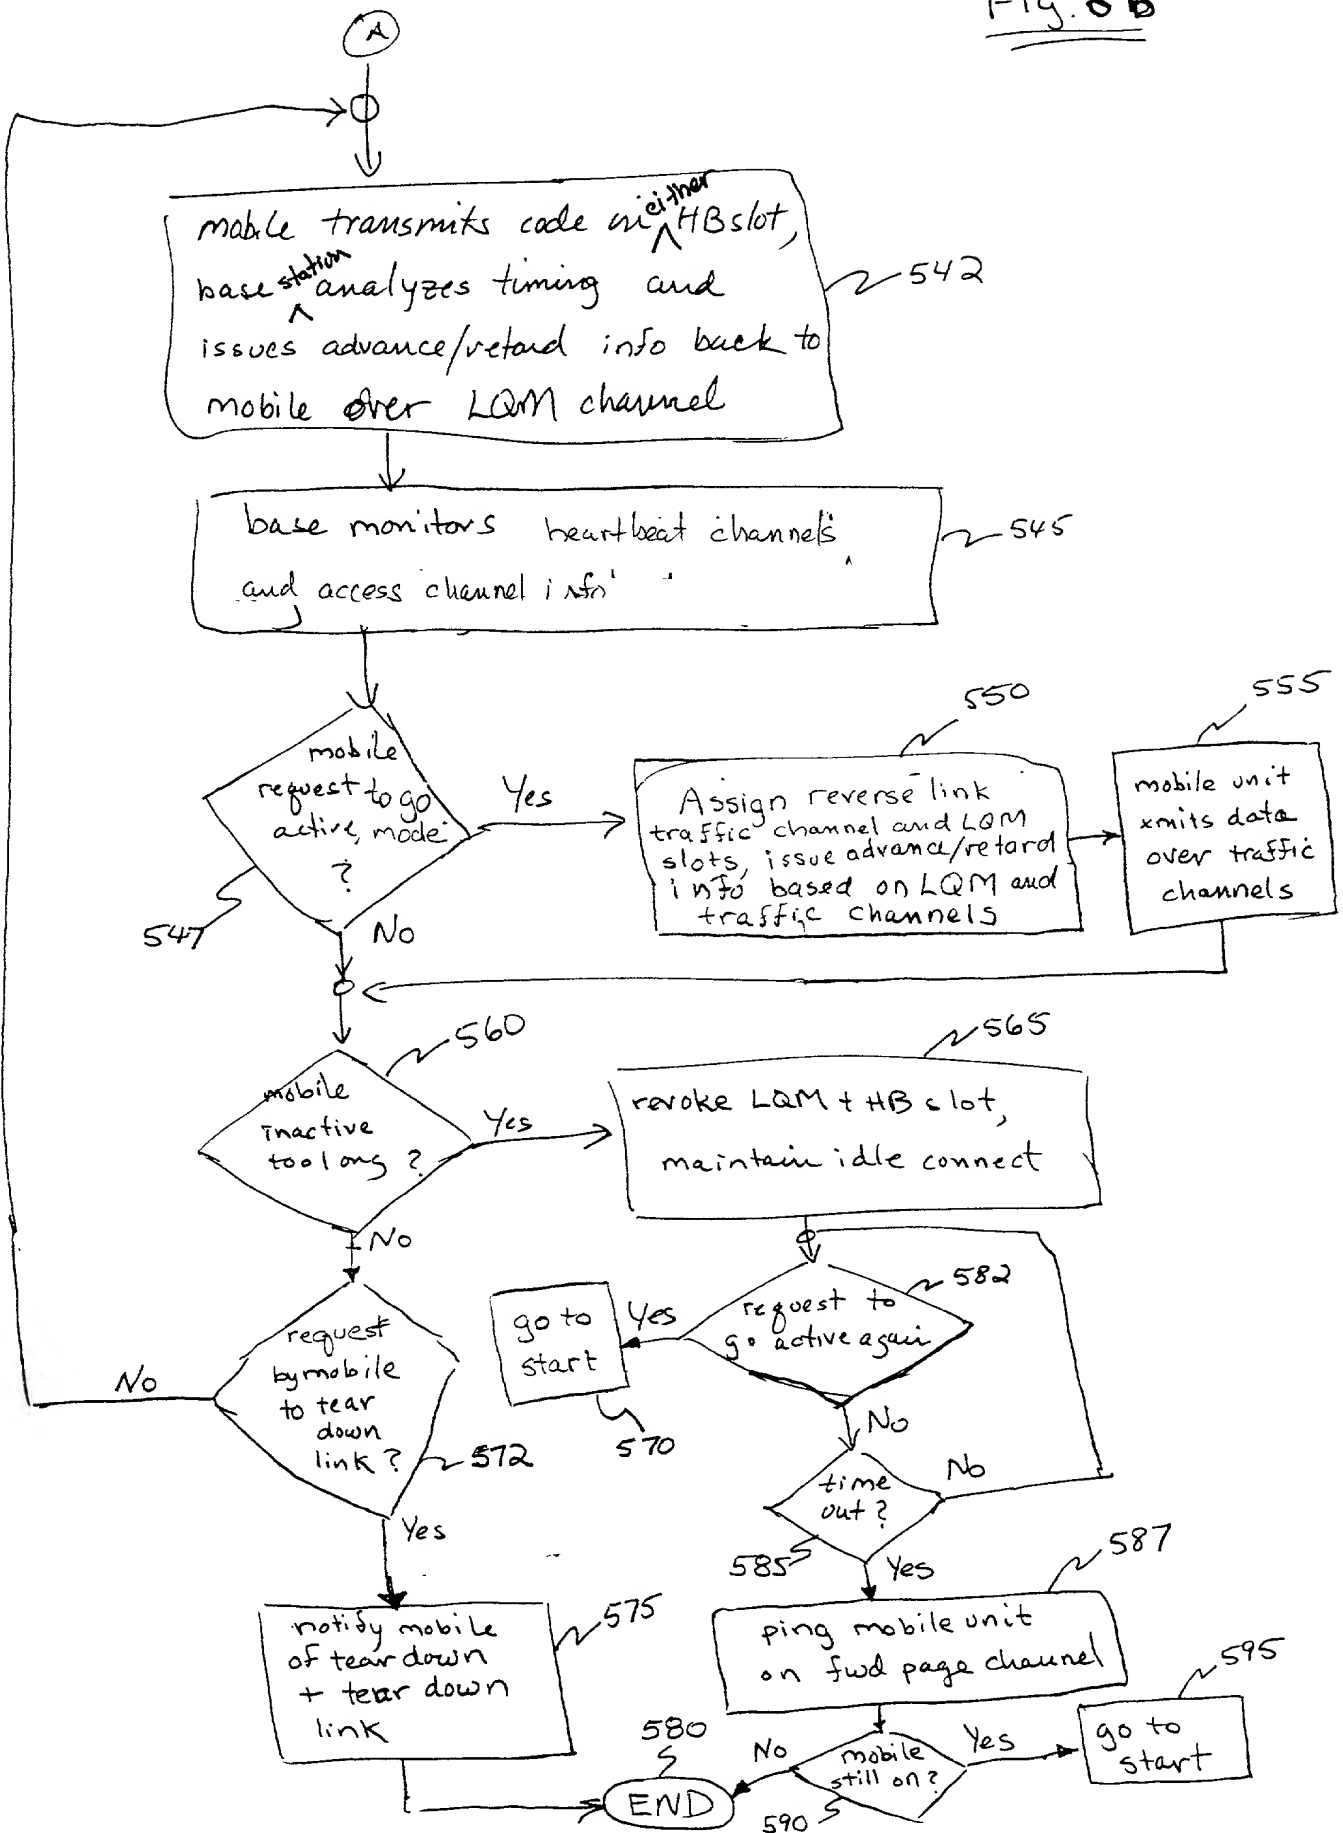 Fig. 8b
A
mobile transmits code on either HB slot,
base station analyzes timing and
issues advance/retard info back to
mobile over LQM channel
542
base monitors heartbeat channels
and access channel info
545
mobile
request to go
active mode
?
547
Yes
No
550
Assign reverse link
traffic channel and LQM
slots, issue advance/retard
info based on LQM and
traffic channels
555
mobile unit
xmits data
over traffic
channels
560
mobile
inactive
too long ?
Yes
No
565
revoke LQM + HB slot,
maintain idle connect
582
request to
go active again
Yes
go to
start
570
No
request
by mobile
to tear
down
link ?
572
No
Yes
time
out ?
585
No
Yes
587
ping mobile unit
on fwd page channel
notify mobile
of tear down
+ tear down
link
575
580
END
No
mobile
still on ?
590
Yes
go to
start
595